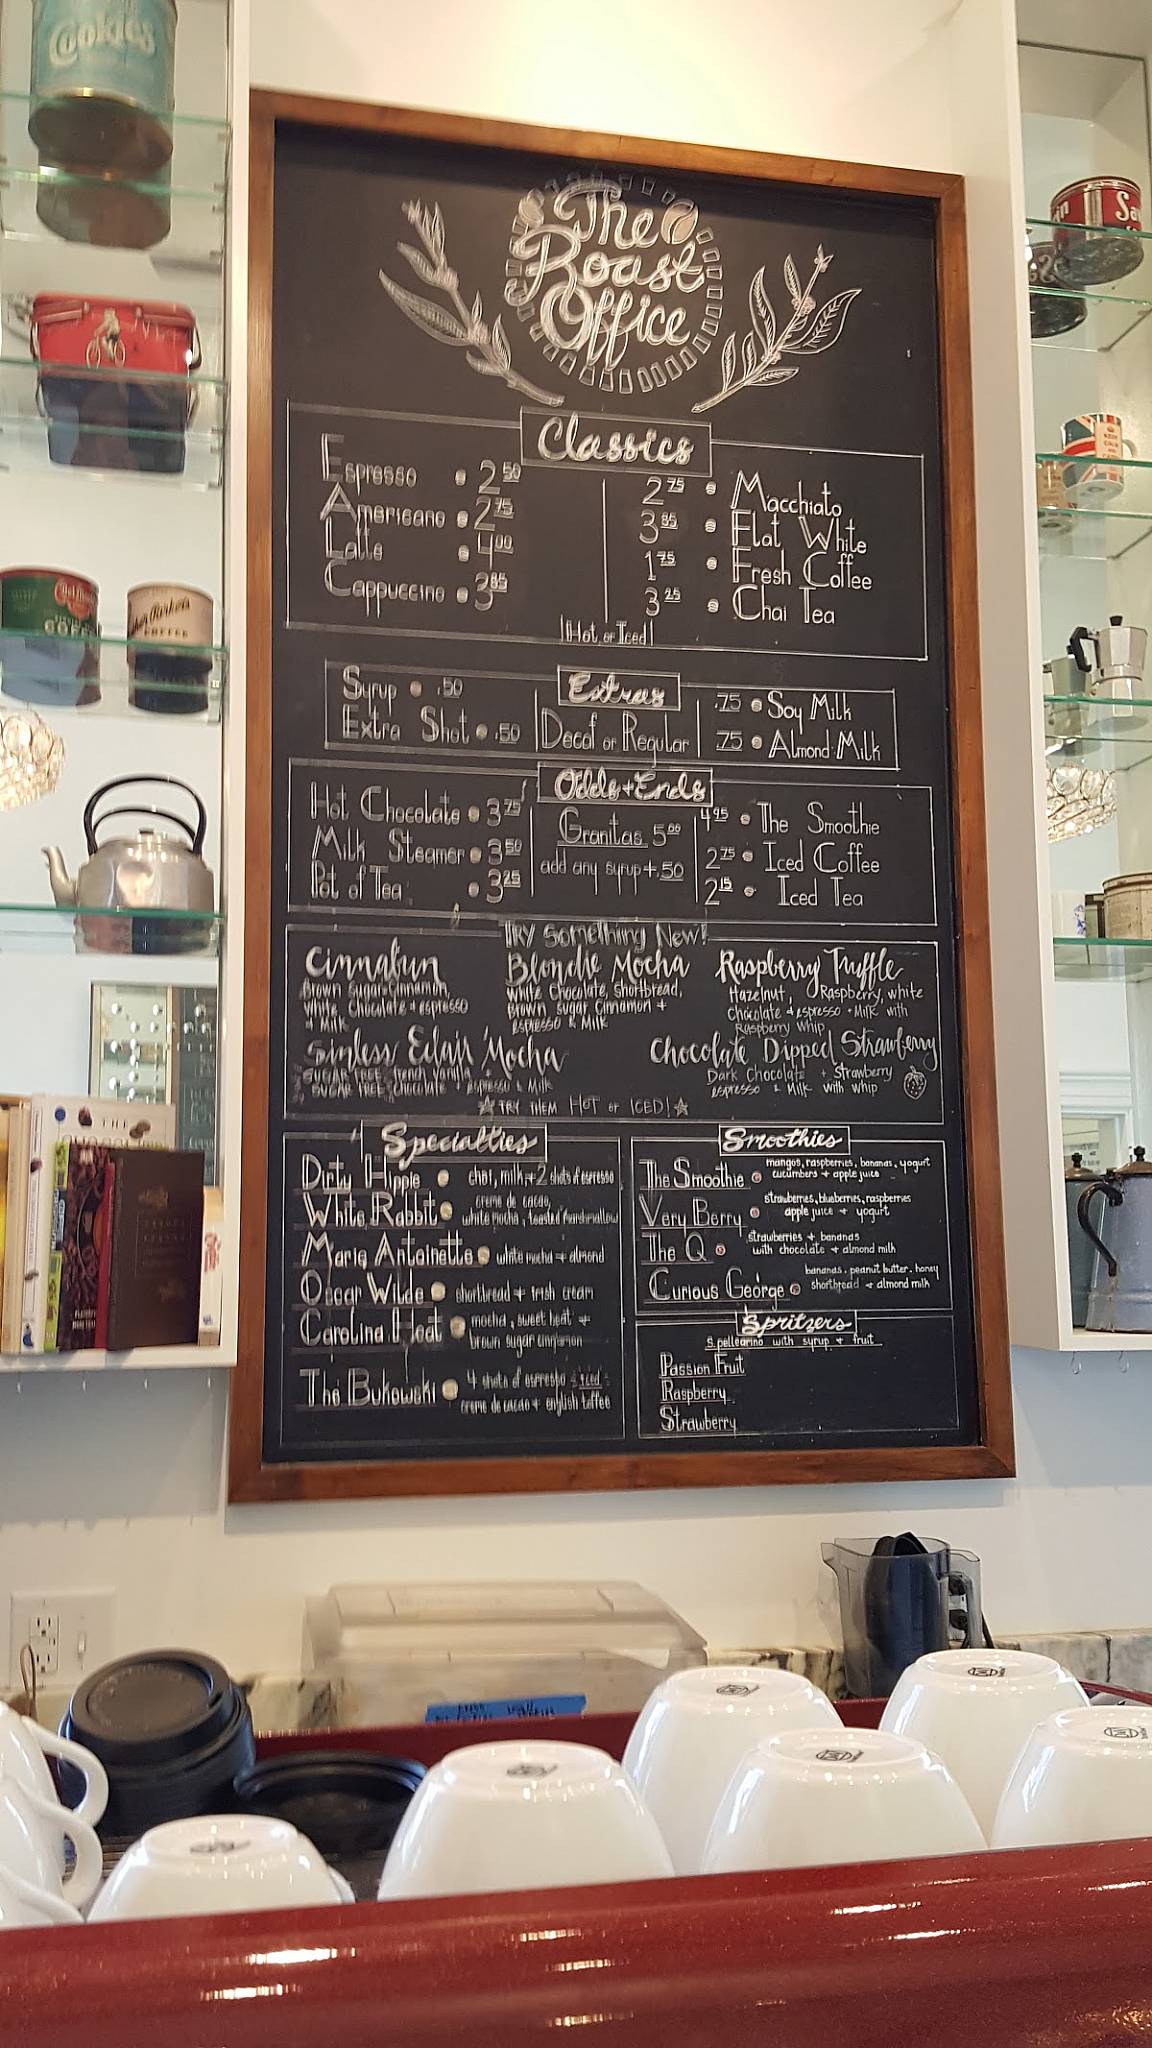 Cookies
The
Roast
Office
Classics
Espresso 2 50
Americano 2 75
Latte 4 00
Cappuccino 3 85
2 75 Macchiato
3 85 Flat White
1 75 Fresh Coffee
3 25 Chai Tea
Hot or Iced
Extras
Syrup .50
Extra Shot .50
Decaf or Regular
.75 Soy Milk
.75 Almond Milk
Odds + Ends
Hot Chocolate 3 75
Milk Steamer 3 50
Pot of Tea 3 25
Granitas 5 00
add any syrup + .50
4 95 The Smoothie
2 75 Iced Coffee
2 15 Iced Tea
TRY Something New!
Cinnabun
Brown Sugar Cinnamon,
White Chocolate + espresso
+ Milk
Blondie Mocha
White Chocolate, Shortbread,
Brown Sugar Cinnamon +
espresso & Milk
Raspberry Truffle
Hazelnut, Raspberry, white
Chocolate + espresso + Milk with
Raspberry Whip
Sinless Eclair Mocha
SUGAR FREE French Vanilla
SUGAR FREE Chocolate + espresso & Milk
Chocolate Dipped Strawberry
Dark Chocolate + Strawberry
espresso & Milk with whip
TRY THEM HOT or ICED!
Specialties
Dirty Hippie chai, milk + 2 shots of espresso
White Rabbit creme de cacao,
white mocha, toasted marshmallow
Marie Antoinette white mocha + almond
Oscar Wilde shortbread + irish cream
Carolina Heat mocha, sweet heat +
brown sugar cinnamon
The Bukowski 4 shots of espresso iced
creme de cacao + english toffee
Smoothies
The Smoothie mangos, raspberries, bananas, yogurt
cucumbers + apple juice
Very Berry strawberries, blueberries, raspberries
apple juice + yogurt
The Q strawberries + bananas
with chocolate + almond milk
Curious George bananas, peanut butter, honey
shortbread + almond milk
Spritzers
S. pellegrino with syrup + fruit
Passion Fruit
Raspberry
Strawberry
COFFEE
THE